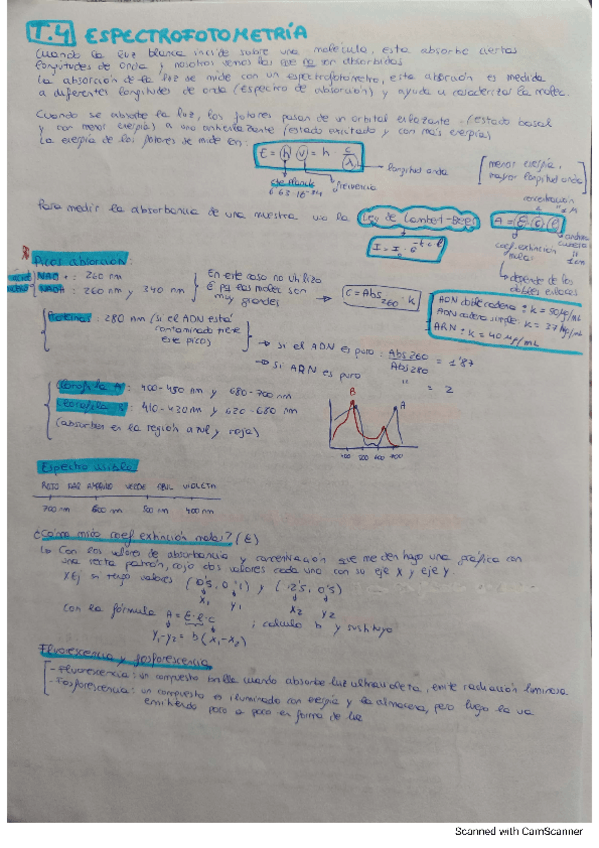 T.4 ESPECTROFOTOMETRÍA
Cuando la luz blanca incide sobre una molécula, esta absorbe ciertas
longitudes de onda y nosotros vemos las que no son absorbidas
La absorción de la luz se mide con un espectrofotómetro, esta aborción es medida
a diferentes longitudes de onda (espectro de absorción) y ayuda a caracterizar la molec.
Cuando se absorbe la luz, los fotones pasan de un orbital enlazante (estado basal
y con menor energía) a uno antienlazante (estado excitado y con más energía)
La energía de los fotones se mide en:
E = h v = h c/λ
longitud onda
[menor energía, mayor longitud onda]
cte Planck
6.63·10⁻³⁴
frecuencia
Para medir la absorbancia de una muestra uso la Ley de Lambert-Beer
concentración
A = ε c l
coef. extinción
molar
1 cm
depende de los
dobles enlaces
Picos absorción:
NAD+: 260 nm
NADH: 260 nm y 340 nm
En este caso no utilizo
ε pq las molec son
muy grandes
C = Abs260 · k
ADN doble cadena: k = 50 μg/mL
ADN cadena simple: k = 37 μg/mL
ARN: k = 40 μg/mL
Proteínas: 280 nm (si el ADN está
contaminado tiene
este pico)
→ si el ADN es puro: Abs260/Abs280 = 1'87
→ si ARN es puro " = 2
Clorofila A: 400-450 nm y 680-700 nm
Clorofila B: 410-430 nm y 620-680 nm
(absorben en la región azul y roja)
B A
Espectro visible
ROJO NAR AMARILLO VERDE AZUL VIOLETA
700 nm 600 nm 500 nm 400 nm
¿Cómo mido coef extinción molar? (ε)
↳ Con los valores de absorbancia y concentración que me den hago una gráfica con
una recta patrón, cojo dos valores cada uno con su eje X y eje Y.
X Ej si tengo valores (0'5, 0'1) y
X₁ Y₁ X₂ Y₂
con la fórmula A = ε·l·c ; calculo b y sustituyo
Y₁-Y₂ = b(X₁-X₂)
Fluorescencia y fosforescencia
- Fluorescencia: un compuesto brilla cuando absorbe luz ultravioleta, emite radiación luminosa
- Fosforescencia: un compuesto es iluminado con energía y la almacena, pero luego la va
emitiendo poco a poco en forma de luz
Scanned with CamScanner